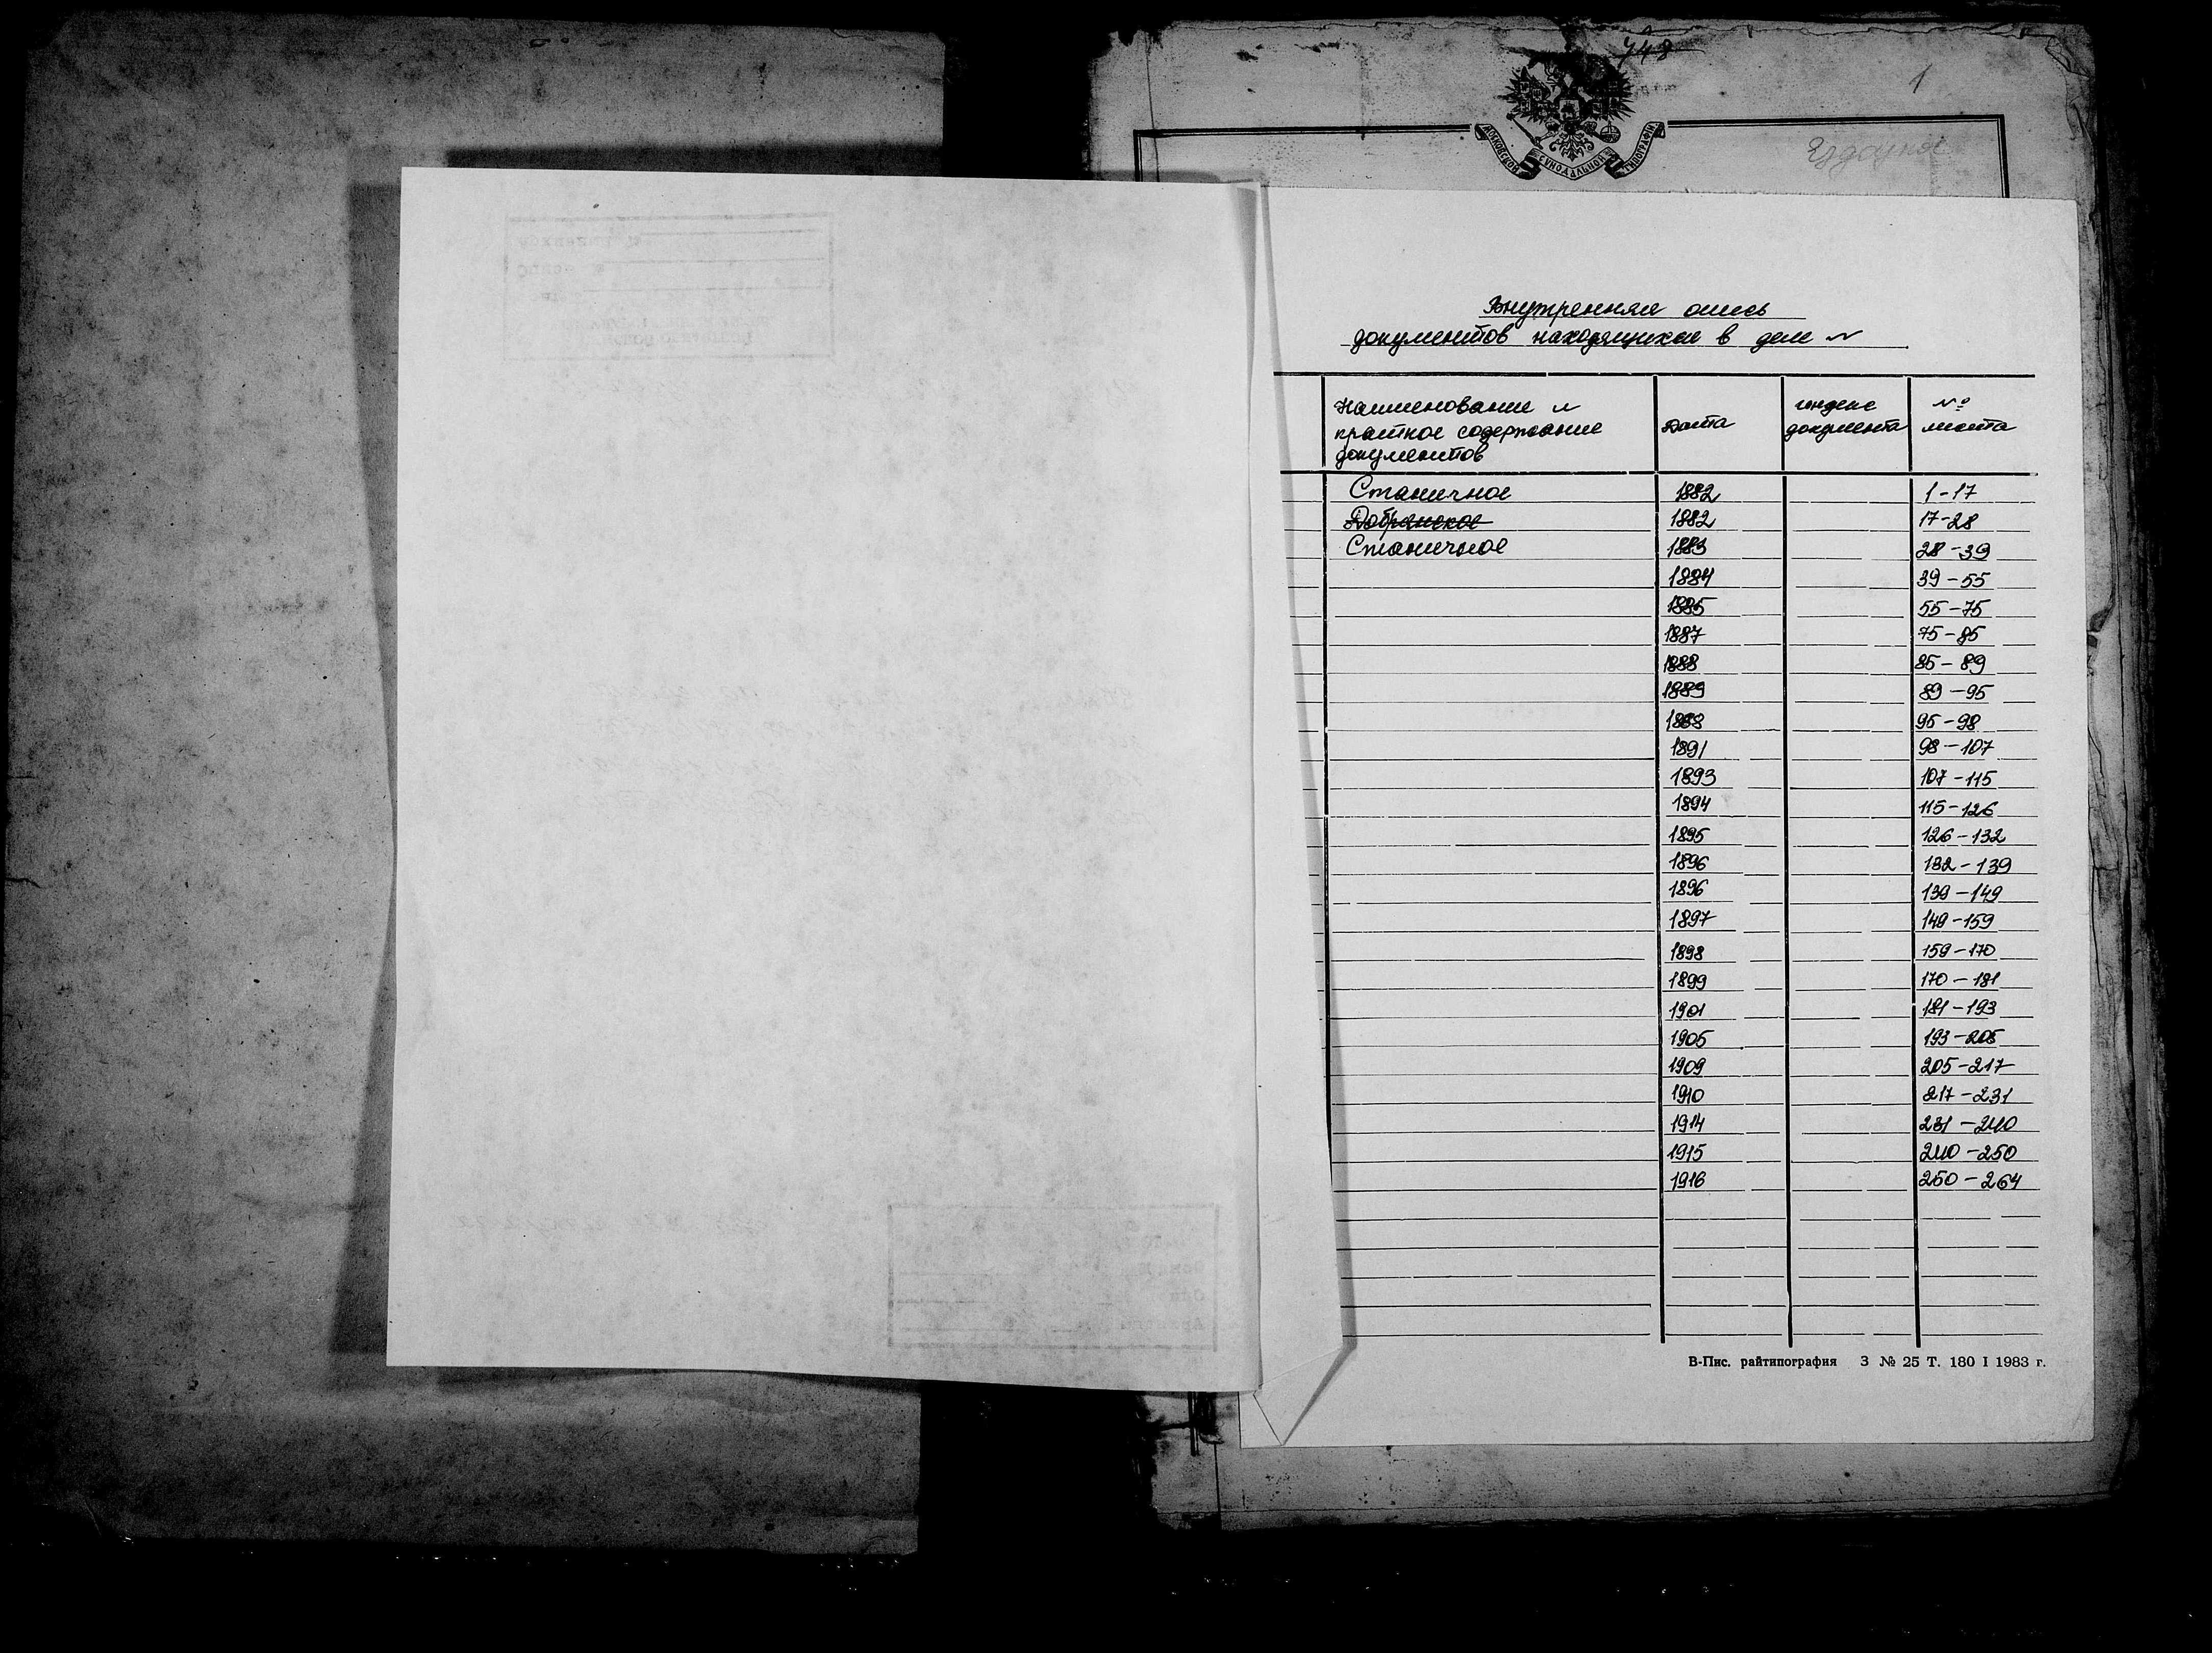 748
1
МОСКОВСКОЙ СѴНОДАЛЬНОЙ ТИПОГРАФІИ
Внутренняя опись
документов находящихся в деле №
Наименование и краткое содержание документов | Дата | индекс документа | № листа
Станичное 1882 1-17
Добрянское 1882 17-28
Станичное 1883 28-39
1884 39-55
1885 55-75
1887 75-85
1888 85-89
1889 89-95
1888 95-98
1891 98-107
1893 107-115
1894 115-126
1895 126-132
1896 132-139
1896 139-149
1897 149-159
1898 159-170
1899 170-181
1901 181-193
1905 193-205
1909 205-217
1910 217-231
1914 231-240
1915 240-250
1916 250-264
В-Пис. райтипография З № 25 Т. 180 I 1983 г.